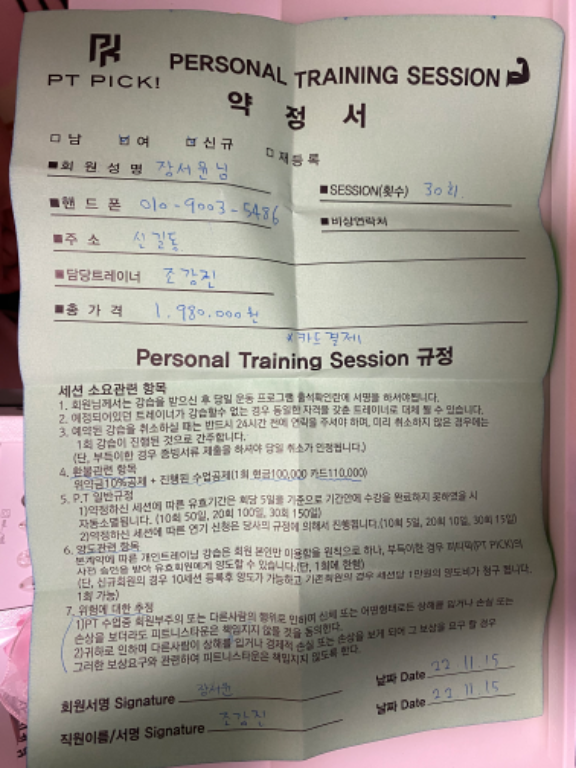 PT PICK!
PERSONAL TRAINING SESSION
약 정 서
□ 남 ☑ 여 ☑ 신규 □ 재등록
■ 회 원 성 명 장서윤님
■ SESSION(횟수) 30회.
■ 핸 드 폰 010-9003-5486
■ 비상연락처
■ 주 소 신길동
■ 담당트레이너 조강진
■ 총 가 격 1,980,000원
*카드결제
Personal Training Session 규정
세션 소요관련 항목
1. 회원님께서는 강습을 받으신 후 당일 운동 프로그램 출석확인란에 서명을 하셔야됩니다.
2. 예정되어있던 트레이너가 강습할수 없는 경우 동일한 자격을 갖춘 트레이너로 대체 될 수 있습니다.
3. 예약된 강습을 취소하실 때는 반드시 24시간 전에 연락을 주셔야 하며, 미리 취소하지 않은 경우에는
1회 강습이 진행된 것으로 간주합니다.
(단, 부득이한 경우 증빙서류 제출을 하셔야 당일 취소가 인정됩니다.)
4. 환불관련 항목
위약금10%공제 + 진행된 수업공제(1회 현금100,000 카드110,000)
5. P.T 일반규정
1)약정하신 세션에 따른 유효기간은 회당 5일를 기준으로 기간안에 수강을 완료하지 못하였을 시
자동소멸됩니다. (10회 50일, 20회 100일, 30회 150일)
2)약정하신 세션에 따른 연기 신청은 당사의 규정에 의해서 진행됩니다.(10회 5일, 20회 10일, 30회 15일)
6. 양도관련 항목
본계약에 따른 개인트레이닝 강습은 회원 본인만 이용함을 원칙으로 하나, 부득이한 경우 피티픽(PT PICK)의
사전 승인을 받아 유효회원에게 양도할 수 있습니다.(단, 1회에 한함)
(단, 신규회원의 경우 10세션 등록후 양도가 가능하고 기존회원의 경우 세션당 1만원의 양도비가 청구 됩니다.
1회 가능)
7. 위험에 대한 추정
1)PT 수업중 회원부주의 또는 다른사람의 행위로 인하여 신체 또는 어떤형태로든 상해를 입거나 손실 또는
손상을 보더라도 피트니스타운은 책임지지 않을 것을 동의한다.
2)귀하로 인하여 다른사람이 상해를 입거나 경제적 손실 또는 손상을 보게 되어 그 보상을 요구 할 경우
그러한 보상요구와 관련하여 피트니스타운은 책임지지 않도록 한다.
회원서명 Signature 장서윤 날짜 Date 22. 11. 15
직원이름/서명 Signature 조강진 날짜 Date 22 11. 15